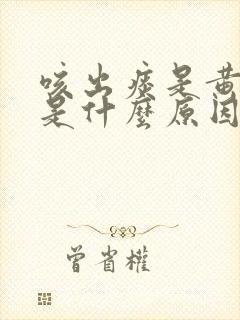 咳出痰是黄
是什麼原因
曾省權